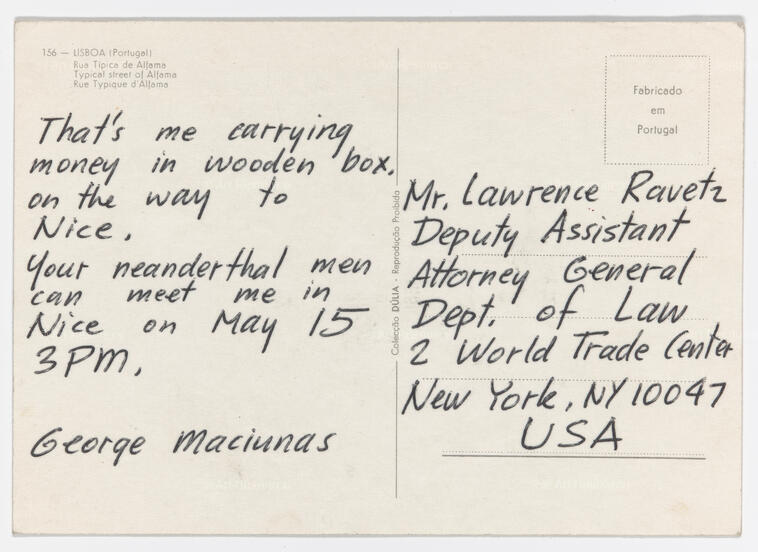 156 — LISBOA (Portugal)
Rua Típica de Alfama
Typical street of Alfama
Rue Typique d'Alfama
That's me carrying
money in wooden box.
on the way to
Nice.
Your neanderthal men
can meet me in
Nice on May 15
3PM.
George Maciunas
Colecção DÚLIA - Reprodução Proibida
Fabricado
em
Portugal
Mr. Lawrence Ravetz
Deputy Assistant
Attorney General
Dept. of Law
2 World Trade Center
New York, NY 10047
USA